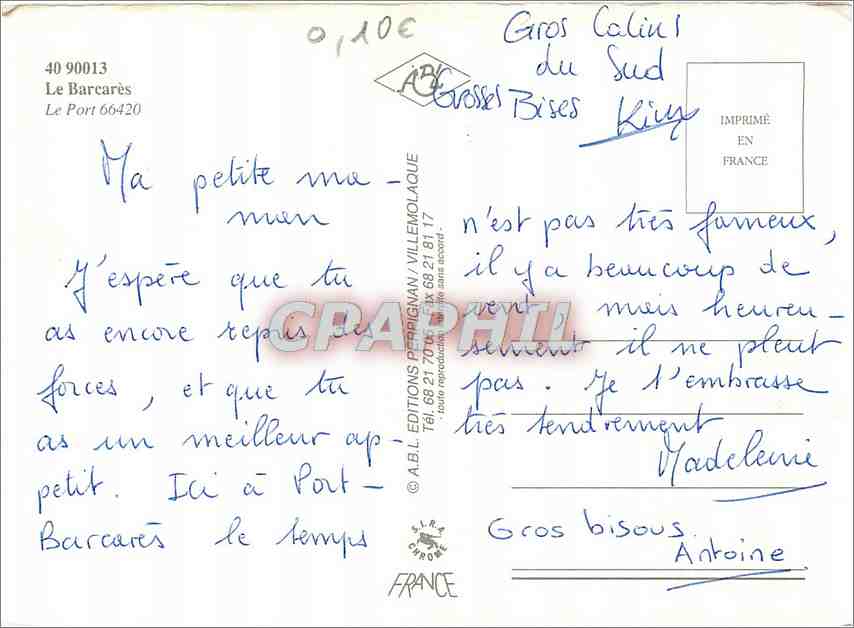 0,10€
40 90013
Le Barcarès
Le Port 66420
Ma petite ma-
man
J'espère que tu
as encore repris des
forces, et que tu
as un meilleur ap-
petit. Ici à Port-
Barcarès le temps
n'est pas très fameux,
il y a beaucoup de
vent, mais heureu-
sement il ne pleut
pas. Je t'embrasse
très tendrement
Madeleine
Gros bisous.
Antoine
Gros Calins
du Sud
Grosses Bises
IMPRIMÉ
EN
FRANCE
© A.B.L. EDITIONS PERPIGNAN / VILLEMOLAQUE
Tél. 68 21 70 Fax 68 21 81 17
- toute reproduction sans accord -
CPAPHIL
S.I.R.A.
CHROME
FRANCE